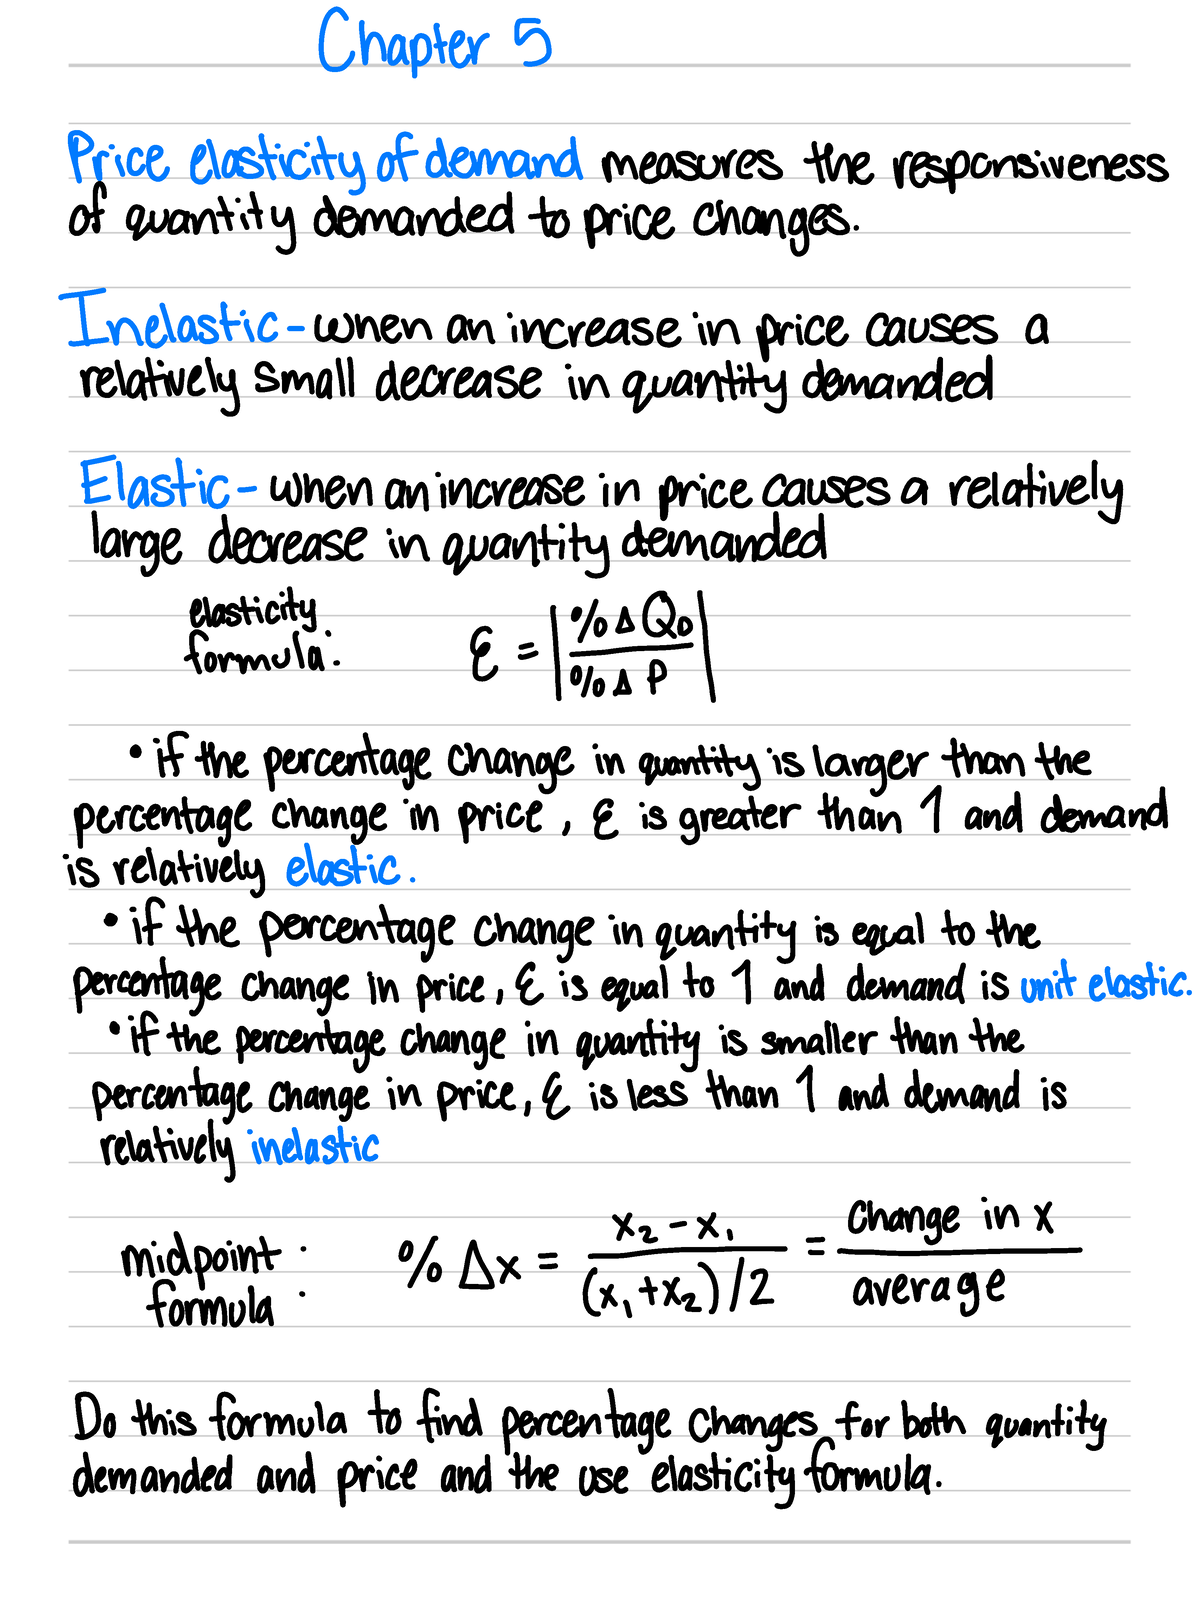 Chapter 5
Price elasticity of demand measures the responsiveness
of quantity demanded to price changes.
Inelastic - when an increase in price causes a
relatively small decrease in quantity demanded
Elastic - when an increase in price causes a relatively
large decrease in quantity demanded
elasticity
formula: ε = | %Δ Q_D / %Δ P |
• if the percentage change in quantity is larger than the
percentage change in price, ε is greater than 1 and demand
is relatively elastic.
• if the percentage change in quantity is equal to the
percentage change in price, ε is equal to 1 and demand is unit elastic.
• if the percentage change in quantity is smaller than the
percentage change in price, ε is less than 1 and demand is
relatively inelastic
midpoint
formula : % Δx = x₂ - x₁ / (x₁ + x₂)/2 = change in x / average
Do this formula to find percentage changes for both quantity
demanded and price and the use elasticity formula.